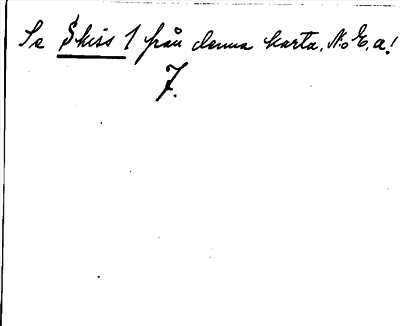 Se Skiss 1 från denna karta. No E. a!
7.